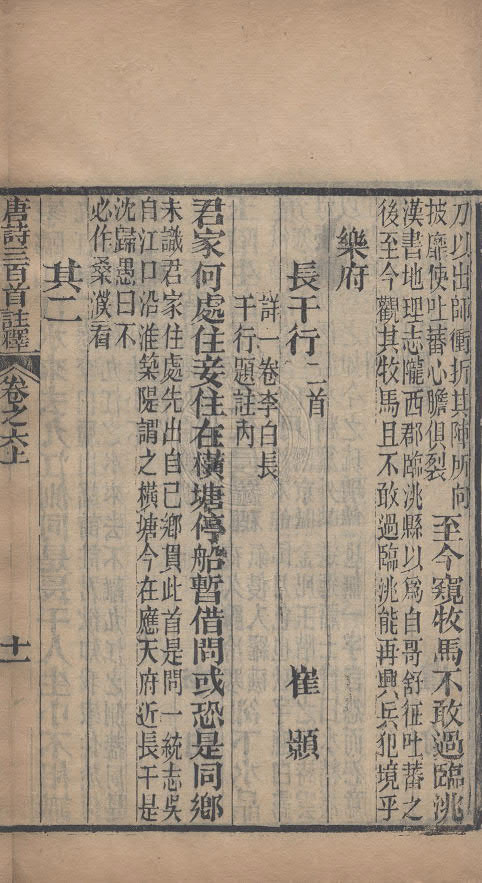 刀以出師衝折其陣所向
披靡使吐蕃心膽俱裂
至今窺牧馬不敢過臨洮
漢書地理志隴西郡臨洮縣以爲自哥舒征吐蕃之
後至今觀其牧馬且不敢過臨洮能再興兵犯境乎
樂府
長干行二首 崔顥
詳一卷李白長
干行題註內
君家何處住妾住在橫塘停船暫借問或恐是同鄉
未識君家住處先出自已鄉貫此首是問一統志吳
自江口沿淮築隄謂之橫塘今在應天府近長干是
沈歸愚曰不
必作桑濮看
其二
唐詩三百首註釋 卷之六上 十一